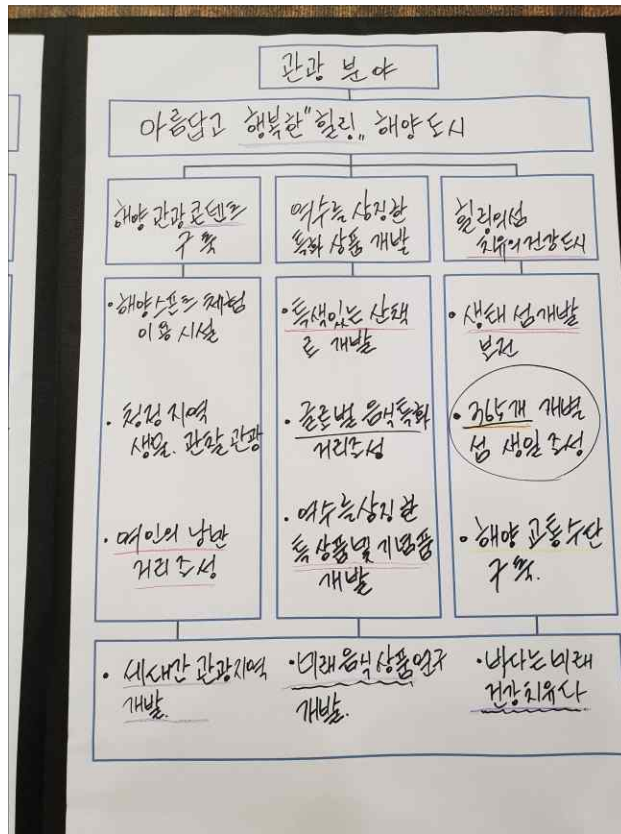 관광 분야
아름답고 행복한 "힐링" 해양도시
해양 관광 콘텐츠
구축
여수를 상징한
특화 상품 개발
힐링의섬
치유의건강도시
• 해양스포츠 체험
이용 시설
• 청정 지역
생물. 관찰 관광
• 여인의 낭만
거리조성
• 특색있는 산책
로 개발
• 글로벌 음식특화
거리조성
• 여수를상징한
특상품및기념품
개발
• 생태 섬개발
보전
• 365개 개별
섬 생일 조성
• 해양 교통수단
구축.
• 세대간 관광지역
개발.
• 미래음식상품연구
개발.
• 바다는미래
건강치유다